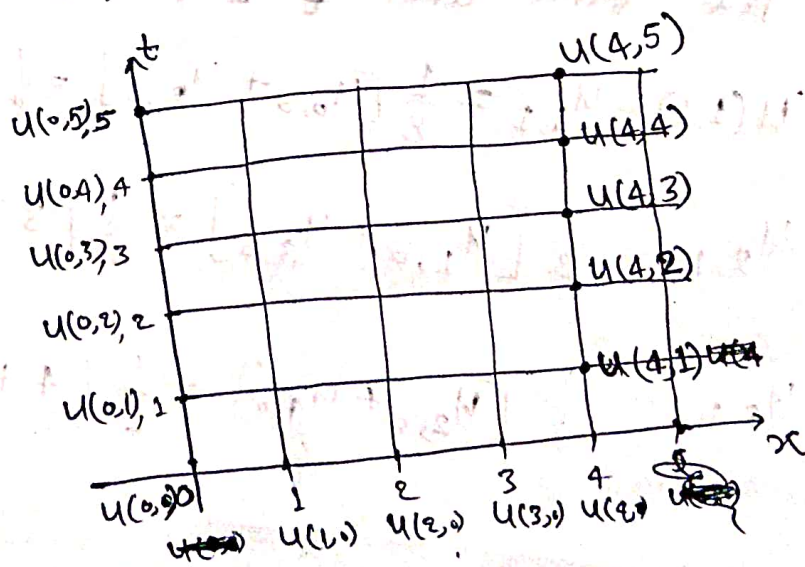 t
U(4,5)
U(0,5),5
U(4,4)
U(0,4),4
U(4,3)
U(0,3),3
U(4,2)
U(0,2),2
U(4,1)
U(0,1),1
x
0 1 2 3 4
U(0,0) U(1,0) U(2,0) U(3,0)